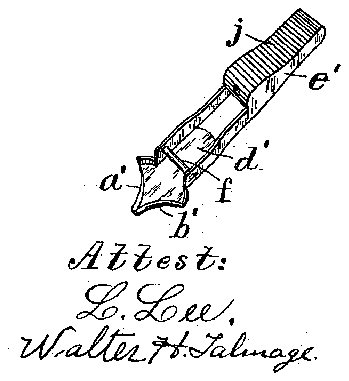 j
e'
d'
a'
f
b'
Attest:
L. Lee.
Walter H. Talmage.